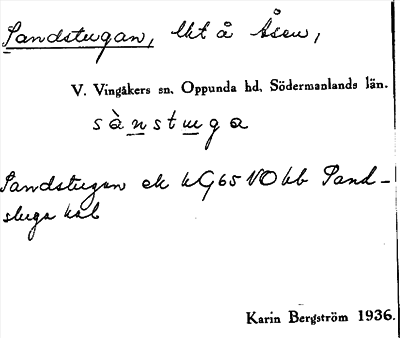 Sandstugan, lht å Åsen,
V. Vingåkers sn. Oppunda hd. Södermanlands län.
sànstuga
Sandstugan ek kG65 NO kb Sand-
stuga hsb
Karin Bergström 1936.